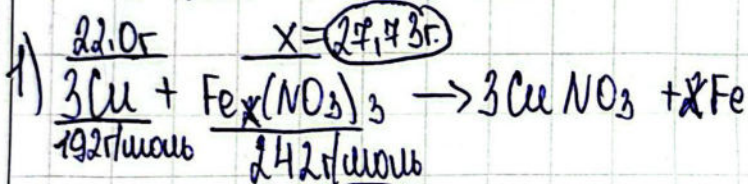 22,0г x = 27,73г.
1) 3Cu + Fe(NO3)3 → 3CuNO3 + Fe
192г/моль 242г/моль